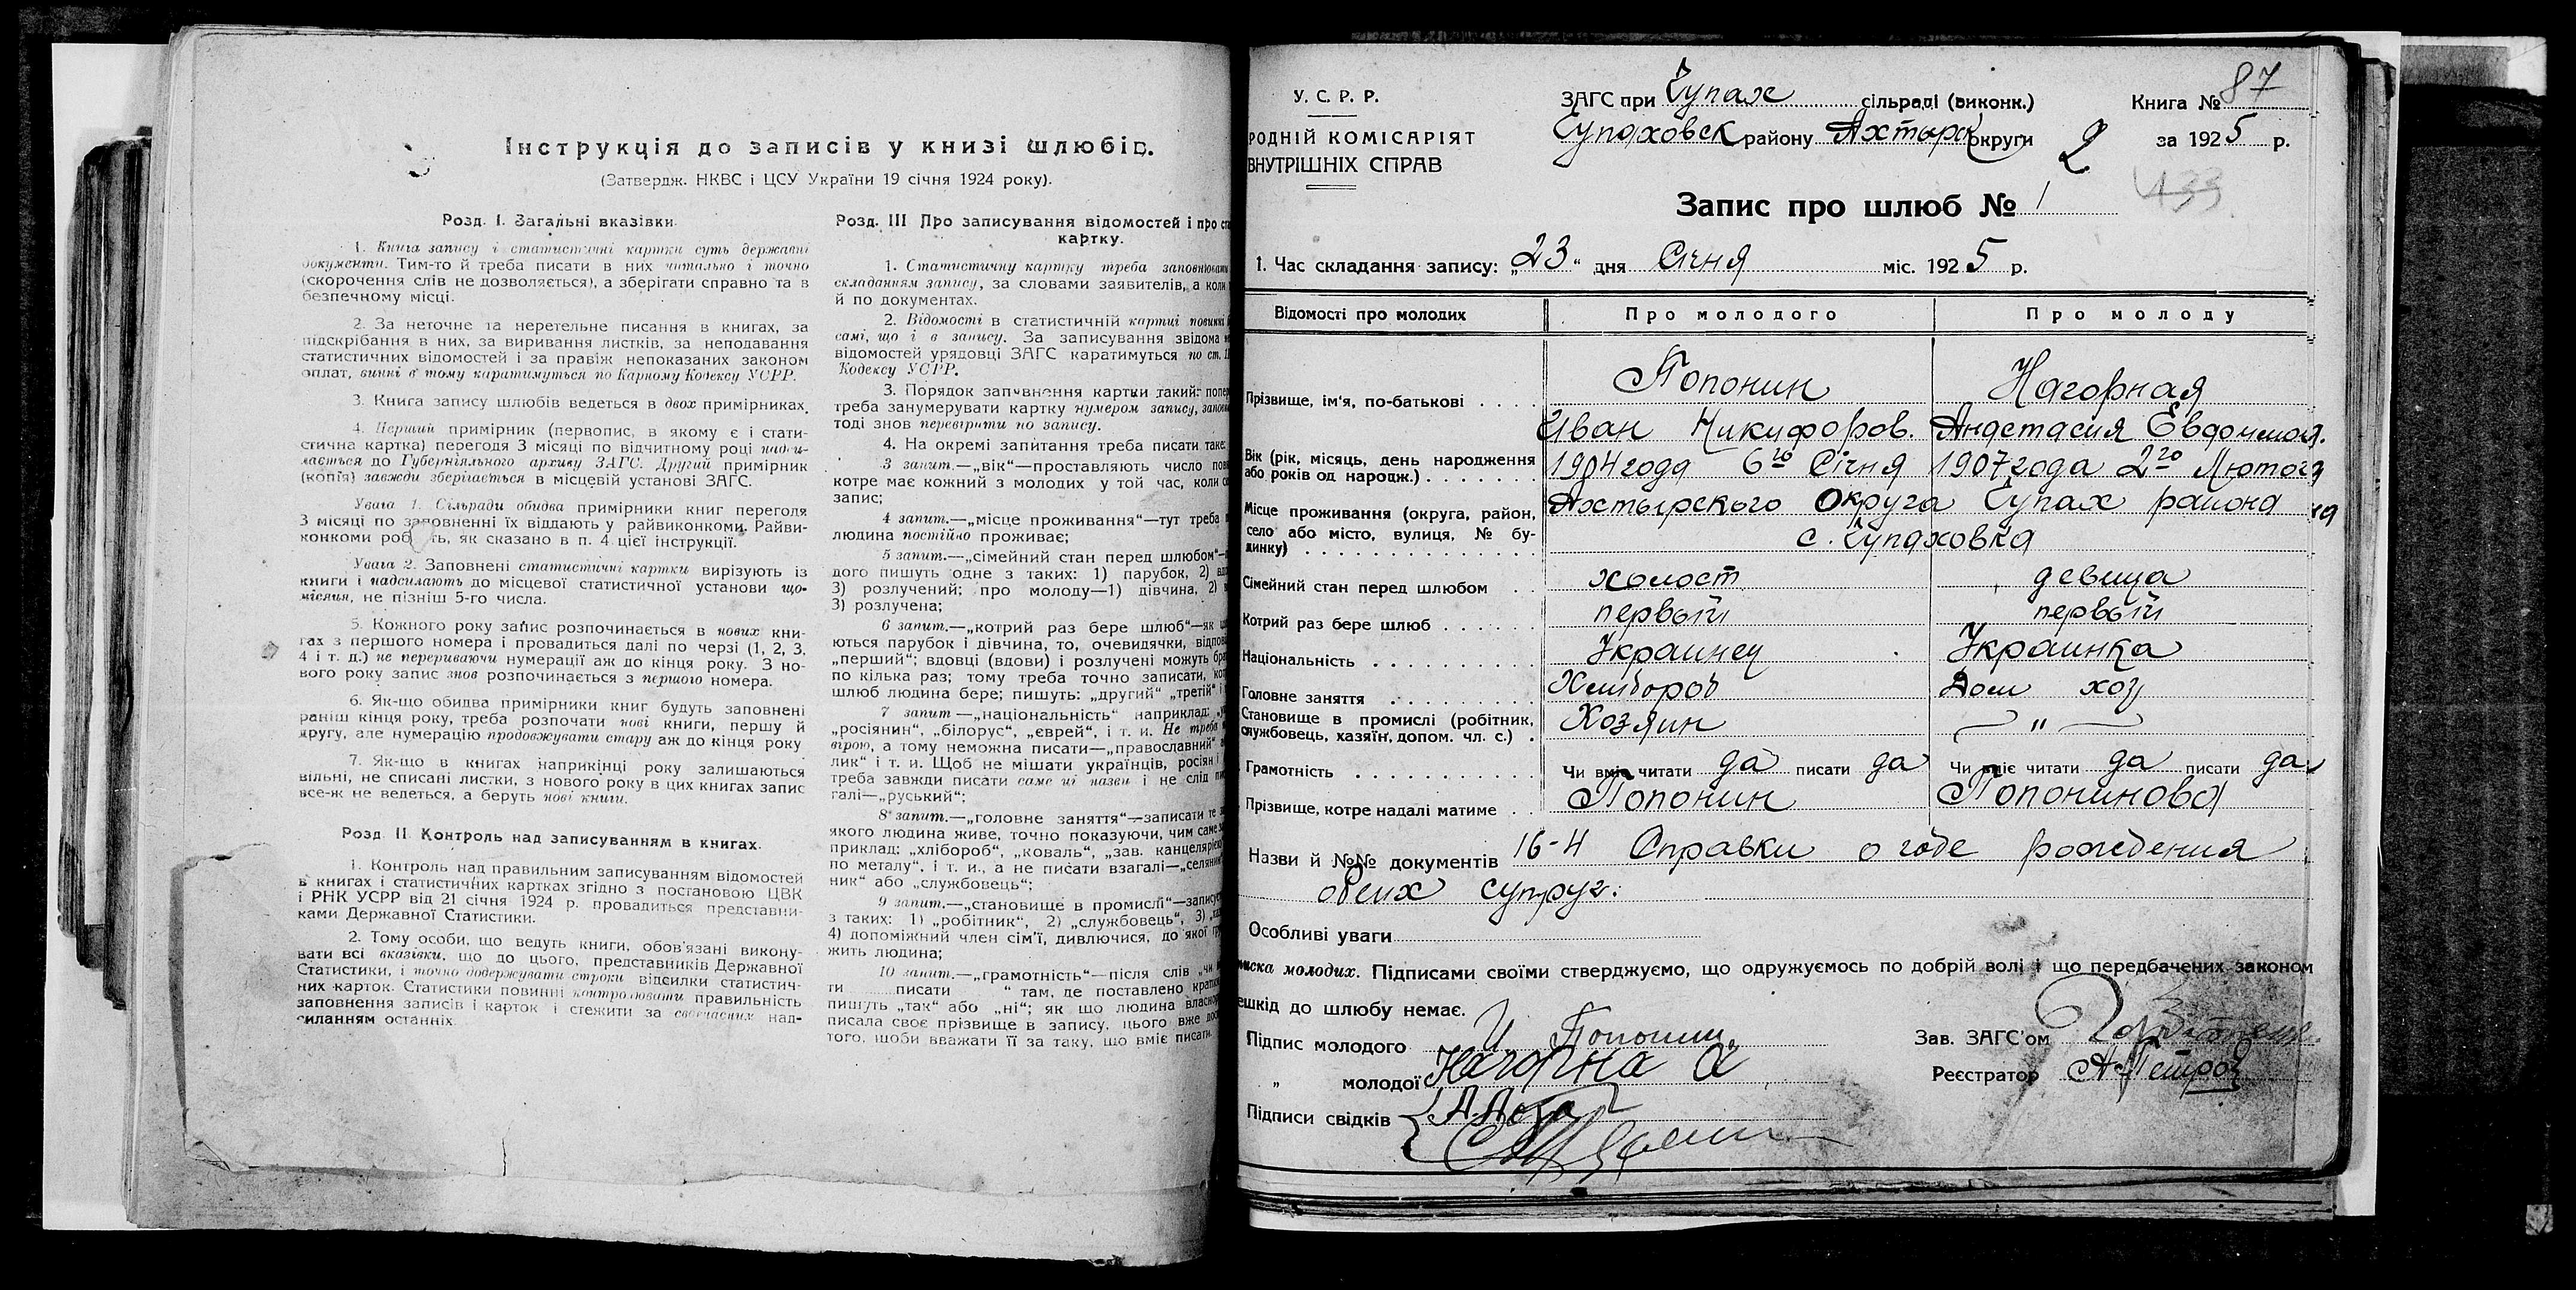 Інструкція до записів у книзі шлюбів.
(Затвердж. НКВС і ЦСУ України 19 січня 1924 року).
Розд. I. Загальні вказівки.
1. Книга запису і статистичні картки суть державні
документи. Тим-то й треба писати в них читально і точно
(скорочення слів не дозволяється), а зберігати справно та в
безпечному місці.
2. За неточне та неретельне писання в книгах, за
підскрібання в них, за виривання листків, за неподавання
статистичних відомостей і за правіж непоказаних законом
оплат, винні в тому каратимуться по Карному Кодексу УСРР.
3. Книга запису шлюбів ведеться в двох примірниках.
4. Перший примірник (первопис, в якому є і стати-
стична картка) перегодя 3 місяці по відчитному році надси-
лається до Губерніяльного архиву ЗАГС. Другий примірник
(копія) завжди зберігається в місцевій установі ЗАГС.
Увага 1. Сільради обидва примірники книг переголя
3 місяці по заповненні їх віддають у райвиконкоми. Райви-
конкоми роб ть, як сказано в п. 4 цієї інструкції.
Увага 2. Заповнені статистичні картки вирізують із
книги і надсилають до місцевої статистичної установи що-
місяця, не пізніш 5-го числа.
5. Кожного року запис розпочинається в нових кни-
гах з першого номера і провадиться далі по черзі (1, 2, 3,
4 і т. д.) не перериваючи нумерації аж до кінця року. З но-
вого року запис знов розпочинається з першого номера.
6. Як-що обидва примірники книг будуть заповнені
раніш кінця року, треба розпочати нові книги, першу й
другу, але нумерацію продовжувати стару аж до кінця року
7. Як-що в книгах наприкінці року залишаються
вільні, не списані листки, з нового року в цих книгах запис
все-ж не ведеться, а беруть нові книги.
Розд. II Контроль над записуванням в книгах.
1. Контроль над правильним записуванням відомостей
в книгах і статистичних картках згідно з постановою ЦВК
і РНК УСРР від 21 січня 1924 р. провадиться представни-
ками Державної Статистики.
2. Тому особи, що ведуть книги, обов'язані викону-
вати всі вказівки, що до цього, представників Державної
Статистики, і точно додержувати строки відсилки статистич-
них карток. Статистики повинні контролювати правильність
заповнення записів і карток і стежити за своєчасних над-
силанням останніх.
Розд. III Про записування відомостей і про ста
картку.
1. Статистичну картку треба заповнювати
складанням запису, за словами заявителів, а коли
й по документах.
2. Відомості в статистичній картці повинні
самі, що і в запису. За записування звідома
відомостей урядовці ЗАГС каратимуться по ст.
Кодексу УСРР.
3. Порядок заповнення картки такий: попер
треба занумерувати картку нумером запису, запов
тоді знов перевірити по запису.
4. На окремі запитання треба писати таке:
3 запит.—„вік“—проставляють число пов
котре має кожний з молодих у той час, коли
запис;
4 запит.—„місце проживання“—тут треба
людина постійно проживає;
5 запит.—„сімейний стан перед шлюбом“—
дого пишуть одне з таких: 1) парубок, 2) вдо
3) розлучений; про молоду—1) дівчина, 2)
3) розлучена;
6 запит.—„котрий раз бере шлюб“—як
ються парубок і дівчина, то, очевидячки, відпов
„перший“; вдовці (вдови) і розлучені можуть бра
по кілька раз; тому треба точно записати, кот
шлюб людина бере; пишуть: „другий“ „третій“ і
7 запит—„національність“ наприклад:
„росіянин“, „білорус“, „єврей“, і т. и. Не треба
вірою, а тому неможна писати—„православний“
лик“ і т. и. Щоб не мішати українців, росіян і
треба завжди писати саме ці назви і не слід
галі—„руський“;
8 запит.—„головне заняття“—записати те
якого людина живе, точно показуючи, чим саме
приклад: „хлібороб“, „коваль“, „зав. канцелярією
по металу“, і т. и., а не писати взагалі—„селянин“
ник“ або „службовець“;
9 запит.—„становище в промислі“—запису
з таких: 1) „робітник“, 2) „службовець“, 3)
4) допоміжний член сім'ї, дивлючися, до якої
жить людина;
10 запит.—„грамотність“—після слів „чи
ти ...... писати “ там, де поставлено крапки
пишуть „так“ або „ні“; як що людина власнор
писала своє прізвище в запису, цього вже дос
того, щоби вважати її за таку, що вміє писати.
87
У. С. Р. Р. ЗАГС при Чупах сільраді (виконк.) Книга №
РОДНІЙ КОМІСАРІЯТ Чупаховск району Ахтырс округи 2 за 1925 р.
ВНУТРІШНІХ СПРАВ
133
Запис про шлюб № 1
1. Час складання запису: „23“ дня Січня міс. 1925 р.
Відомості про молодих Про молодого Про молоду
Прізвище, ім'я, по-батькові Попонин Нагорная
Иван Никифоров. Анастасия Евдокимов.
Вік (рік, місяць, день народження або років од народж.) 1904 года 6го Січня 1907 года 2го Лютого
Місце проживання (округа, район, село або місто, вулиця, № будинку) Ахтырского Округа Чупах района
с. Чупаховка
Сімейний стан перед шлюбом холост девица
Котрий раз бере шлюб первый первый
Національність Украинец Украинка
Головне заняття Хлибороб Дом хоз
Становище в промислі (робітник, службовець, хазяїн, допом. чл. с.) Хозяин — " —
Грамотність Чи вміє читати да писати да Чи вміє читати да писати да
Прізвище, котре надалі матиме Попонин Попонинова
Назви й №№ документів 16-4 Справки о годе рождения
обеих супруг.
Особливі уваги
писка молодих. Підписами своїми стверджуємо, що одружуємось по добрій волі і що передбачених законом
ешкід до шлюбу немає.
Підпис молодого И. Попонин Зав. ЗАГС'ом
„ молодої Нагорна А Реєстратор А. Петров
Підписи свідків